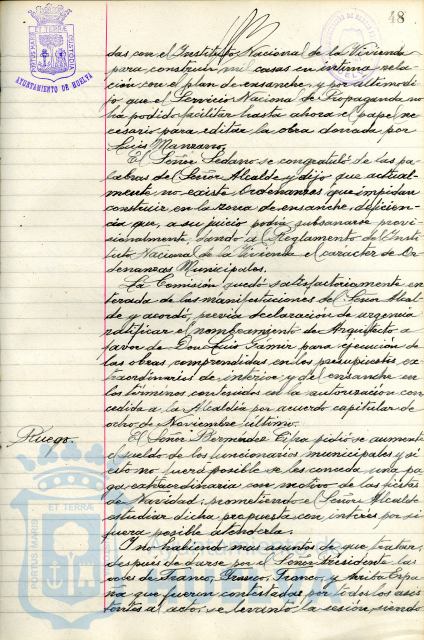 48
PORTUS MARIS ET TERRÆ CUSTODIA
AYUNTAMIENTO DE HUELVA
das con el Instituto Nacional de la Vivienda
para construir mil casas en íntima rela-
ción con el plan de ensanche, y por último di-
jo que el Servicio Nacional de Propaganda no
ha podido facilitar hasta ahora el papel ne-
cesario para editar la obra donada por
Luis Manzano.
El Señor Sedano se congratuló de las pa-
labras del Señor Alcalde y dijo que actual-
mente no existe Ordenanzas que impidan
construir en la zona de ensanche, deficien-
cia que, a su juicio podía subsanarse provi-
sionalmente dando al Reglamento del Insti-
tuto Nacional de la Vivienda el carácter de Or-
denanzas Municipales.
La Comisión quedó satisfactoriamente en-
terada de las manifestaciones del Señor Alcal-
de y acordó, previa declaración de urgencia
ratificar el nombramiento de Arquitecto a
favor de Don Luis Gamir para ejecución de
las obras comprendidas en los presupuestos, ex-
traordinarios de interior y del ensanche en
los términos contenidos en la autorización con-
cedida a la Alcaldía por acuerdo capitular de
ocho de Noviembre último.
Ruego.
El Señor Bermúdez pidió se aumente
el sueldo de los funcionarios municipales y si
esto no fuera posible se les conceda una pa-
ga extraordinaria con motivo de las fiestas
de Navidad; prometiendo el Señor Alcalde
estudiar dicha propuesta con interés por si
fuera posible atenderla.
Y no habiendo mas asuntos de que tratar,
despues de darse por el Señor Presidente las
voces de Franco, Franco, Franco, y Arriba Espa-
ña que fueron contestadas por todos los asis-
tentes al acto, se levantó la sesión, siendo
PORTUS MARIS ET TERRÆ
Ayuntamiento de
HUELVA